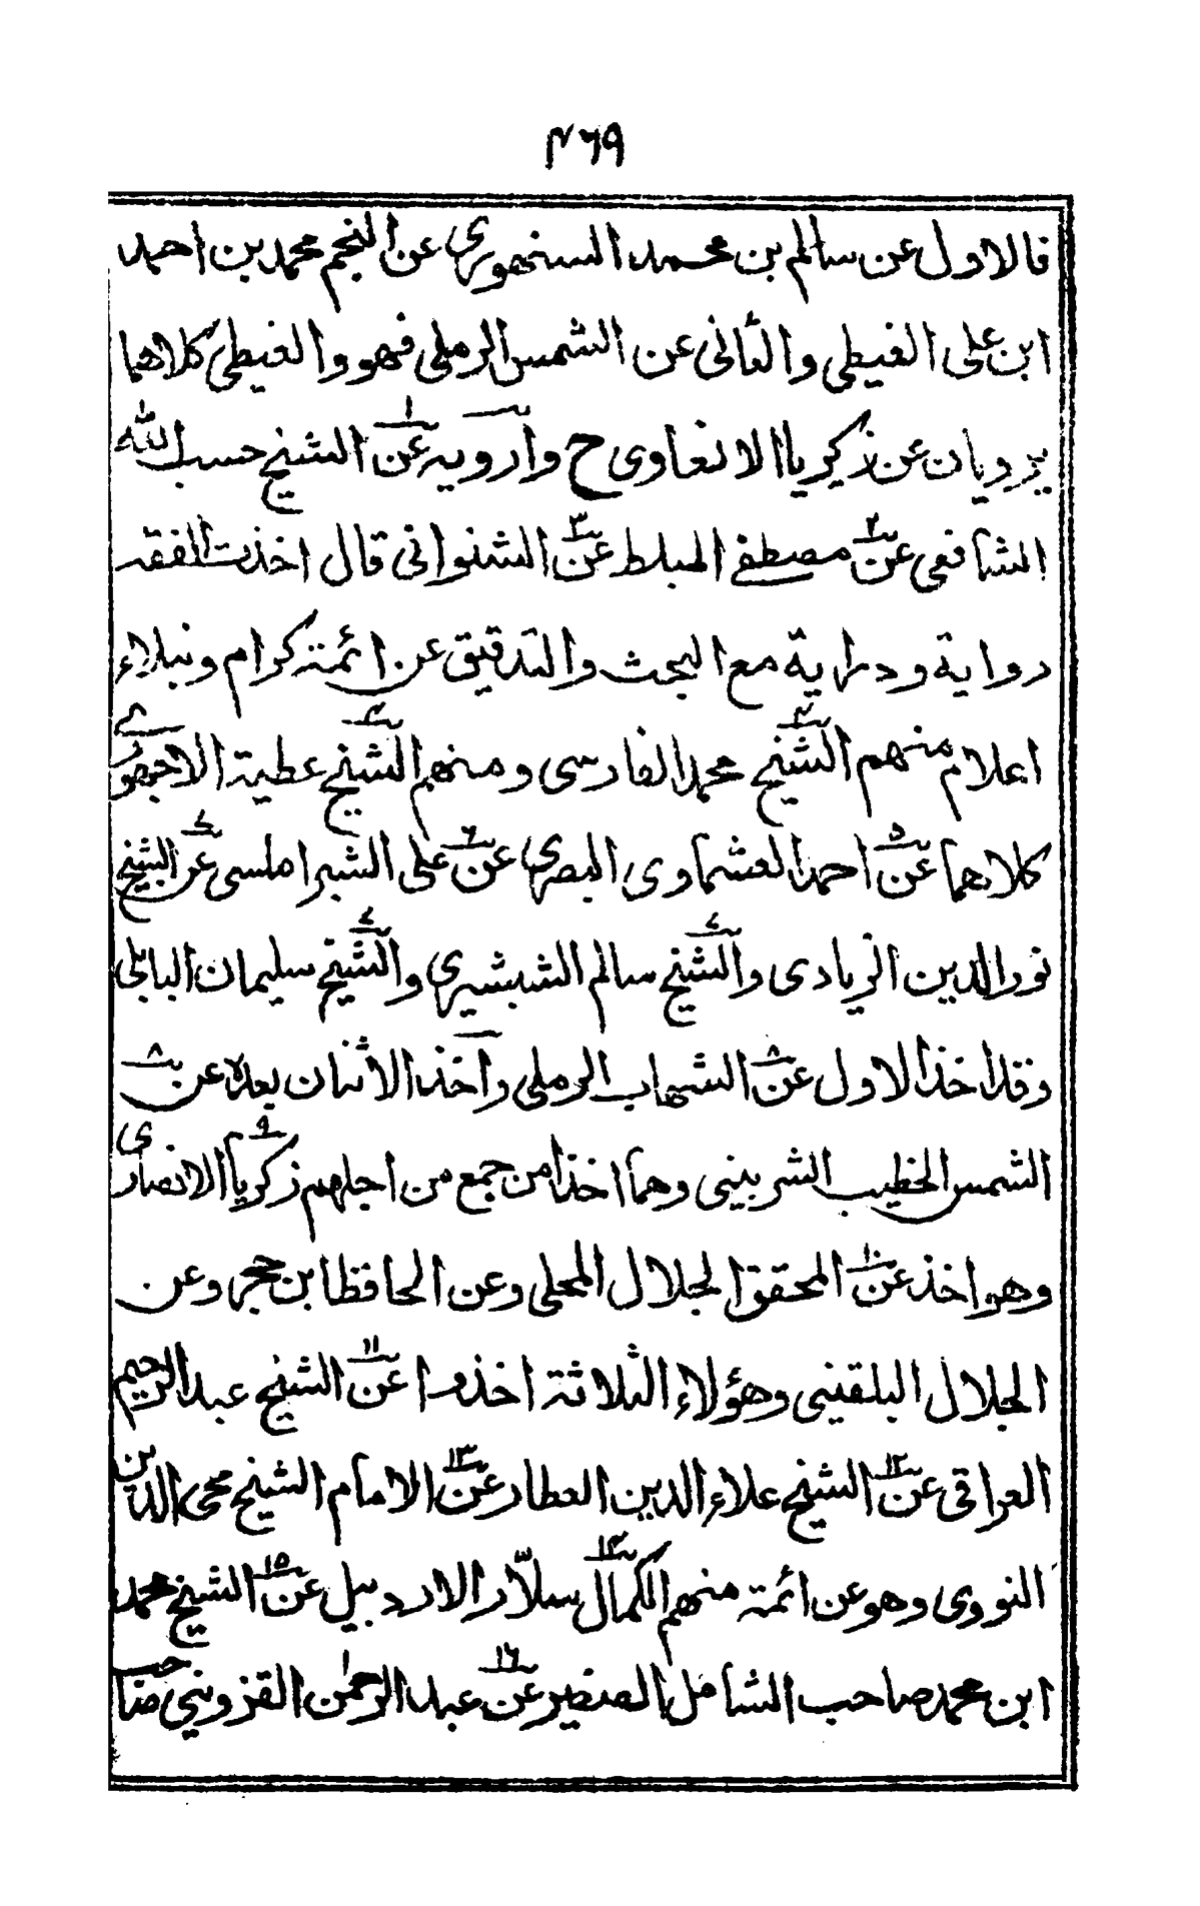 ٤٦٩
فالاول عن سالم بن محمد السنهوري عن النجم محمد بن احمد
ابن على الغيطى والثانى عن الشمس الرملى فهو والغيطى كلاهما
يرويان عن زكريا الانصاوى ح وارويه عن الشيخ حسب الله
الشافعى عن مصطفى المبلط عن الشنوانى قال اخذت الفقه
رواية ودراية مع البحث والتدقيق عن ائمة كرام ونبلاء
اعلام منهم الشيخ محمد الفارسى ومنهم الشيخ عطية الاجهورى
كلاهما عن احمد العشماوى المصرى عن على الشبراملسى عن الشيخ
نور الدين الزيادى والشيخ سالم الشبشيرى والشيخ سليمان البابلى
وقد اخذ الاول عن الشهاب الرملى وآخذ الاثنان بعده عن
الشمس الخطيب الشربينى وهما اخذا من جمع من اجلهم زكريا الانصارى
وهو اخذ عن المحقق الجلال المحلى وعن الحافظ ابن حجر وعن
الجلال البلقينى وهؤلاء الثلاثة اخذوا عن الشيخ عبد الرحيم
العراقى عن الشيخ علاء الدين العطار عن الامام الشيخ محى الدين
النووى وهو عن ائمة منهم الكمال سلاّر الاردبيل عن الشيخ محمد
ابن محمد صاحب الشامل الصغير عن عبد الرحمن القزوينى صاحب